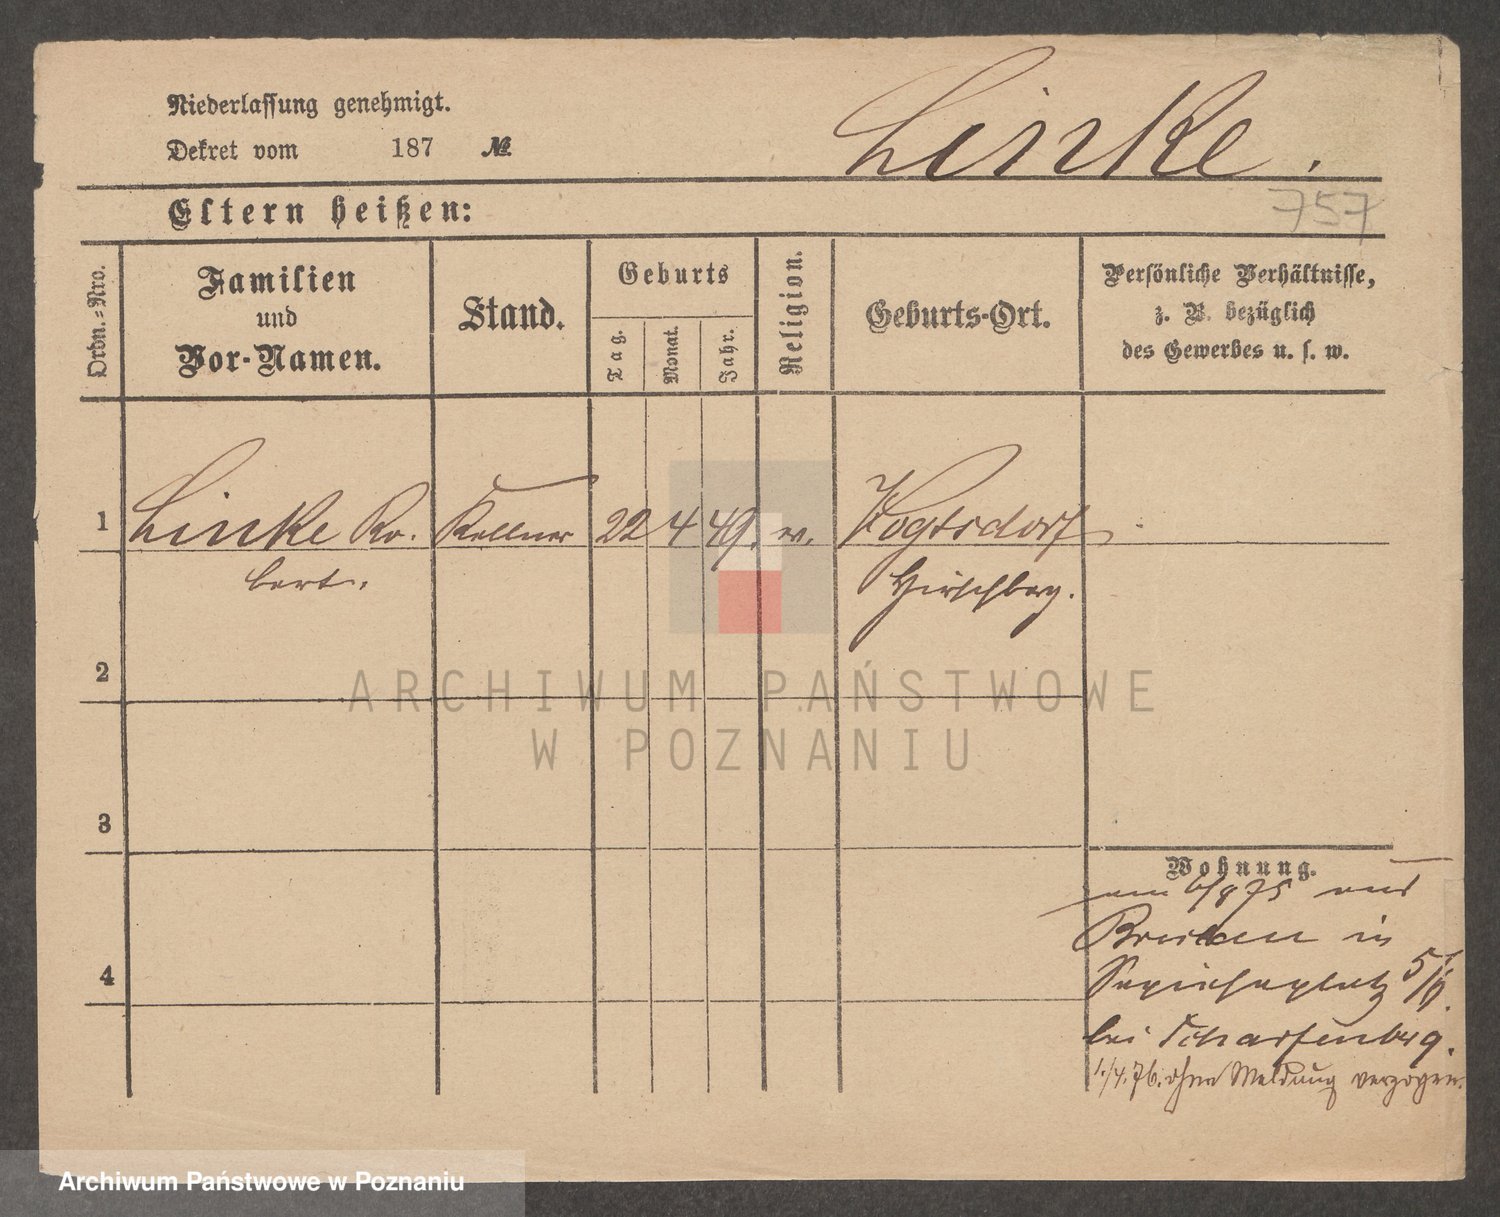 Niederlassung genehmigt.
Dekret vom 187 №
Linke.
757
Eltern heißen:
Ordn.=Nro.
Familien
und
Vor-Namen.
Stand.
Geburts
Tag.
Monat.
Jahr.
Religion.
Geburts-Ort.
Persönliche Verhältnisse,
z. B. bezüglich
des Gewerbes u. s. w.
1 Linke Ro. Kellner 22 4 49. ev. Vogtsdorf
bert. Hirschberg.
2
3
4
Wohnung.
am 6/8 75 aus
in
Sapiehaplatz 5/6.
bei Scharfenberg.
1./4. 76. ohne Meldung verzogen.
ARCHIWUM PAŃSTWOWE
W POZNANIU
Archiwum Państwowe w Poznaniu